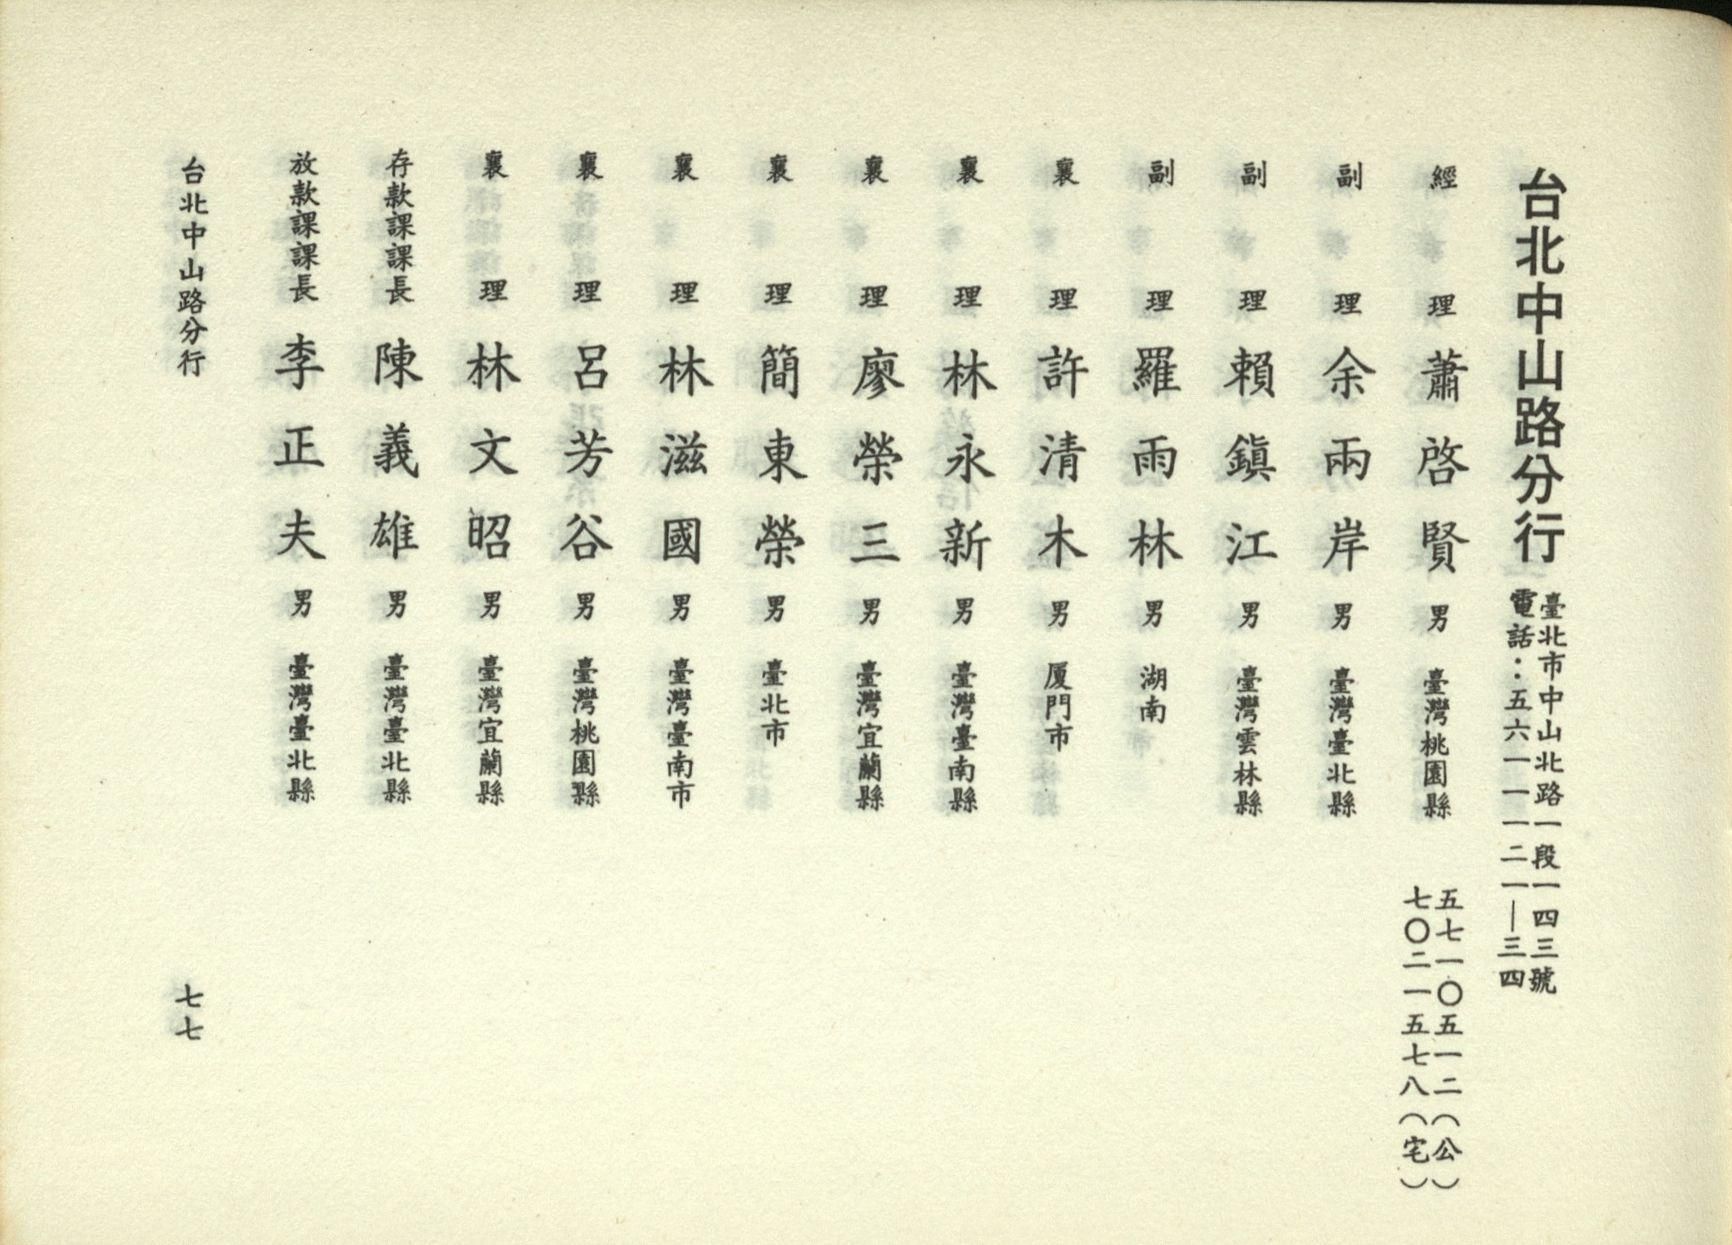 台北中山路分行
臺北市中山北路一段一四三號
電話：五六一一一二一—三四
經理 蕭啓賢 男 臺灣桃園縣 五七一〇五一二（公）
七〇二一五七八（宅）
副理 余兩岸 男 臺灣臺北縣
副理 賴鎭江 男 臺灣雲林縣
副理 羅雨林 男 湖南
襄理 許清木 男 厦門市
襄理 林永新 男 臺灣臺南縣
襄理 廖榮三 男 臺灣宜蘭縣
襄理 簡東榮 男 臺北市
襄理 林滋國 男 臺灣臺南市
襄理 呂芳谷 男 臺灣桃園縣
襄理 林文昭 男 臺灣宜蘭縣
存款課課長 陳義雄 男 臺灣臺北縣
放款課課長 李正夫 男 臺灣臺北縣
台北中山路分行
七七